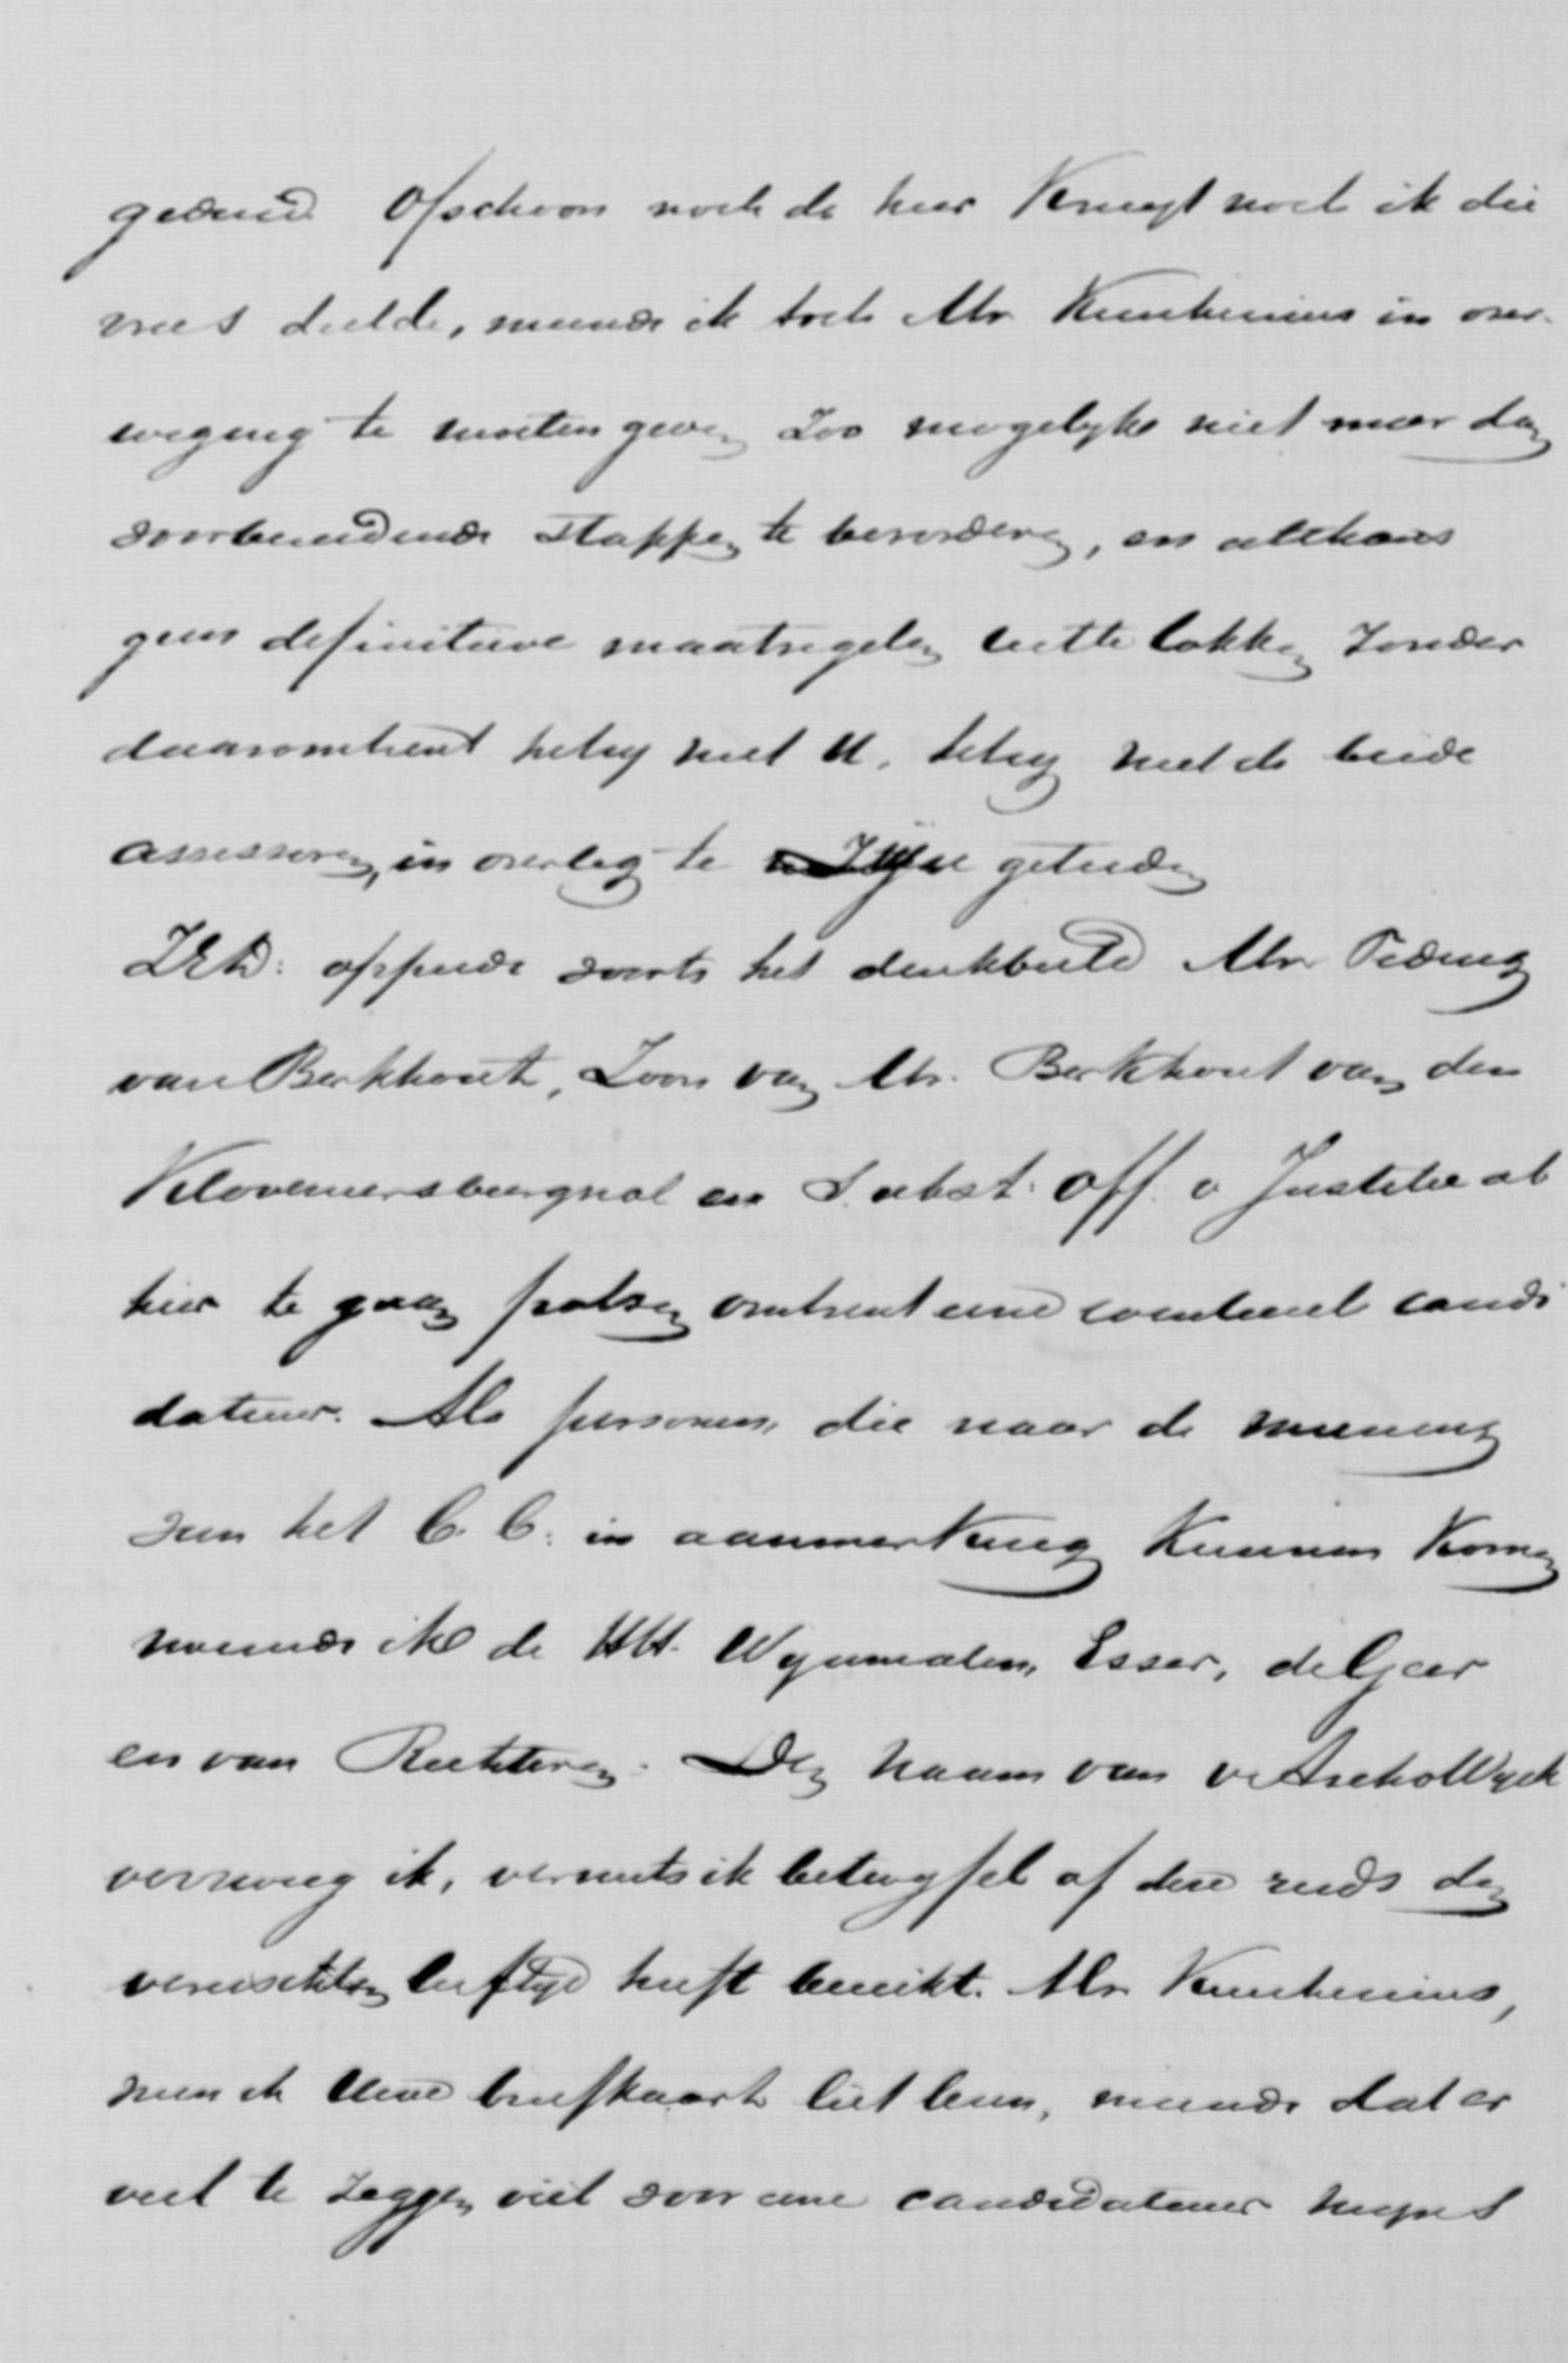 gediend. Ofschoon noch de heer Kruyt noch ik die
vrees deelde, meende ik toch Mr. Keuchenius in over-
weging te moeten geven zoo mogelyk niet meer dan
voorbereidende stappen te bevorderen, en althans
geen definitieve maatregelen uittelokken zonder
daaromtrent hetzy met U, hetzy met de beide
assessoren, in overleg te zyn getreden
ZEd: opperde voorts het denkbeeld Mr. Teding
van Berkhout, Zoon van Mr. Berkhout van den
Kloveniersburgwal en Subst. Off. v Justitie al
hier te gaan polsen omtrent eene eventueele candi
datuur. Als personen, die naar de meening
van het C. C. in aanmerking kunnen komen
noemde ik de HH. Wynmalen, Esser, de Geer
en van Rechteren. Den naam van v. Asch v Wyck
verzweeg ik, vermits ik betwyfel of deze reeds den
vereischten leeftyd heeft bereikt. Mr. Keuchenius,
wien ik Uwe briefkaart liet lezen, meende dat er
veel te zeggen viel voor eene candidatuur